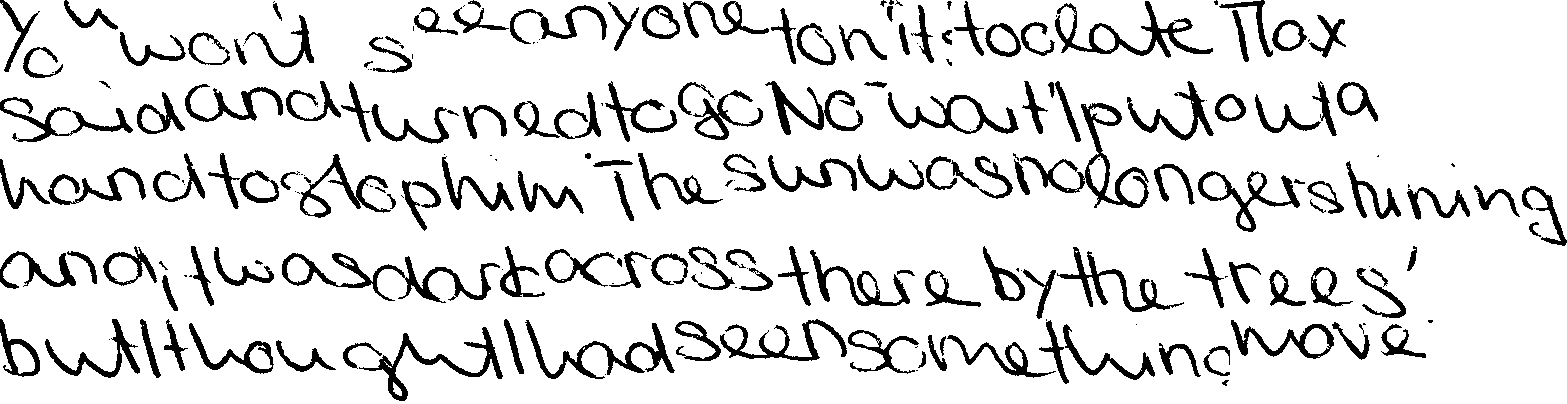 You won't see anyone ton it: too late Max
said and turned to go No - wait' I put out a
hand to stop him. The sun was no longer shining
and, it was dark across there by the trees'
but I thought I had seen something move.